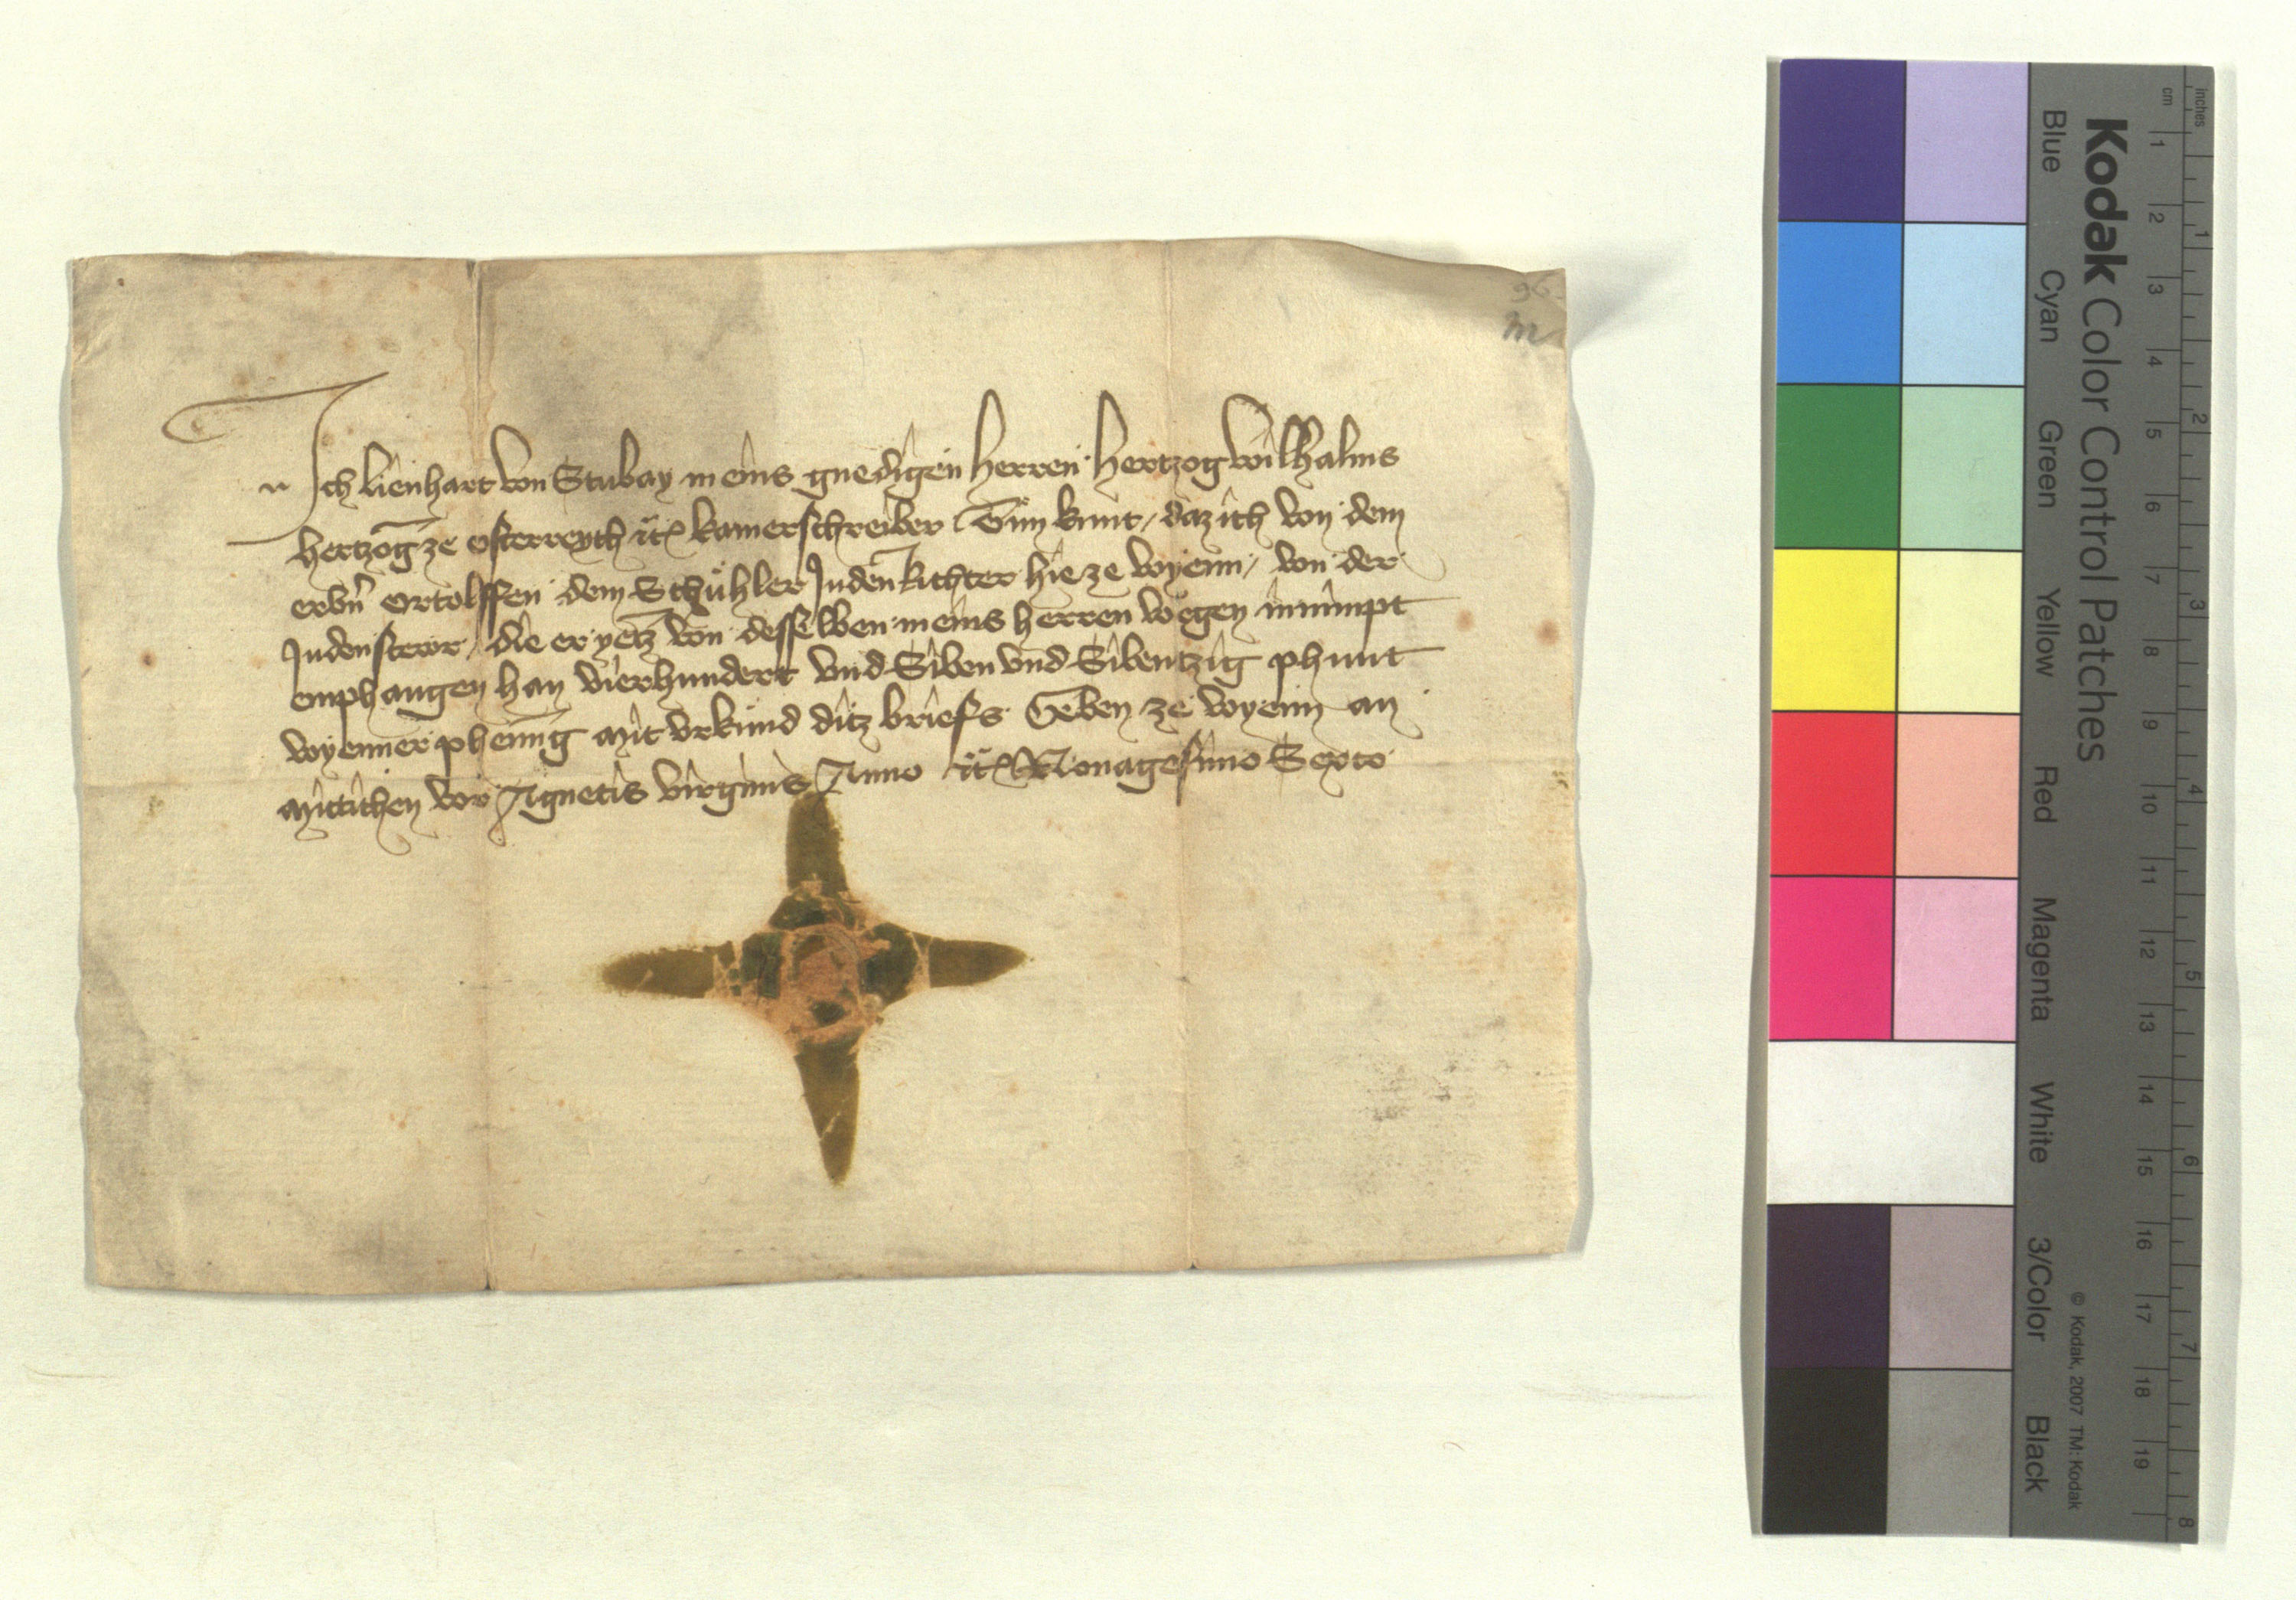 96
m
Ich Lienhart von Stubay meins gnedigen herren hertzog Wilhalms
hertzog ze Osterreych etc kamerschreiber Tun kunt / daz ich von dem
erbn Ortolffen dem Schühler Judenrichter hie ze Wyenn / von der
Judenstewr / die er yetz von desselben meins herren wegen innimpt
emphangen han vierhundert vnd Siben vnd Sibentzig phunt
Wyenner phening mit vrkund ditz briefs Geben ze Wyenn an
Mittichen vor Agnetis virginis Anno etc Nonagesimo Sexto
Kodak Color Control Patches
Blue Cyan Green Yellow Red Magenta White 3/Color Black
© Kodak, 2007 TM: Kodak
cm 1 2 3 4 5 6 7 8 9 10 11 12 13 14 15 16 17 18 19
inches 1 2 3 4 5 6 7 8